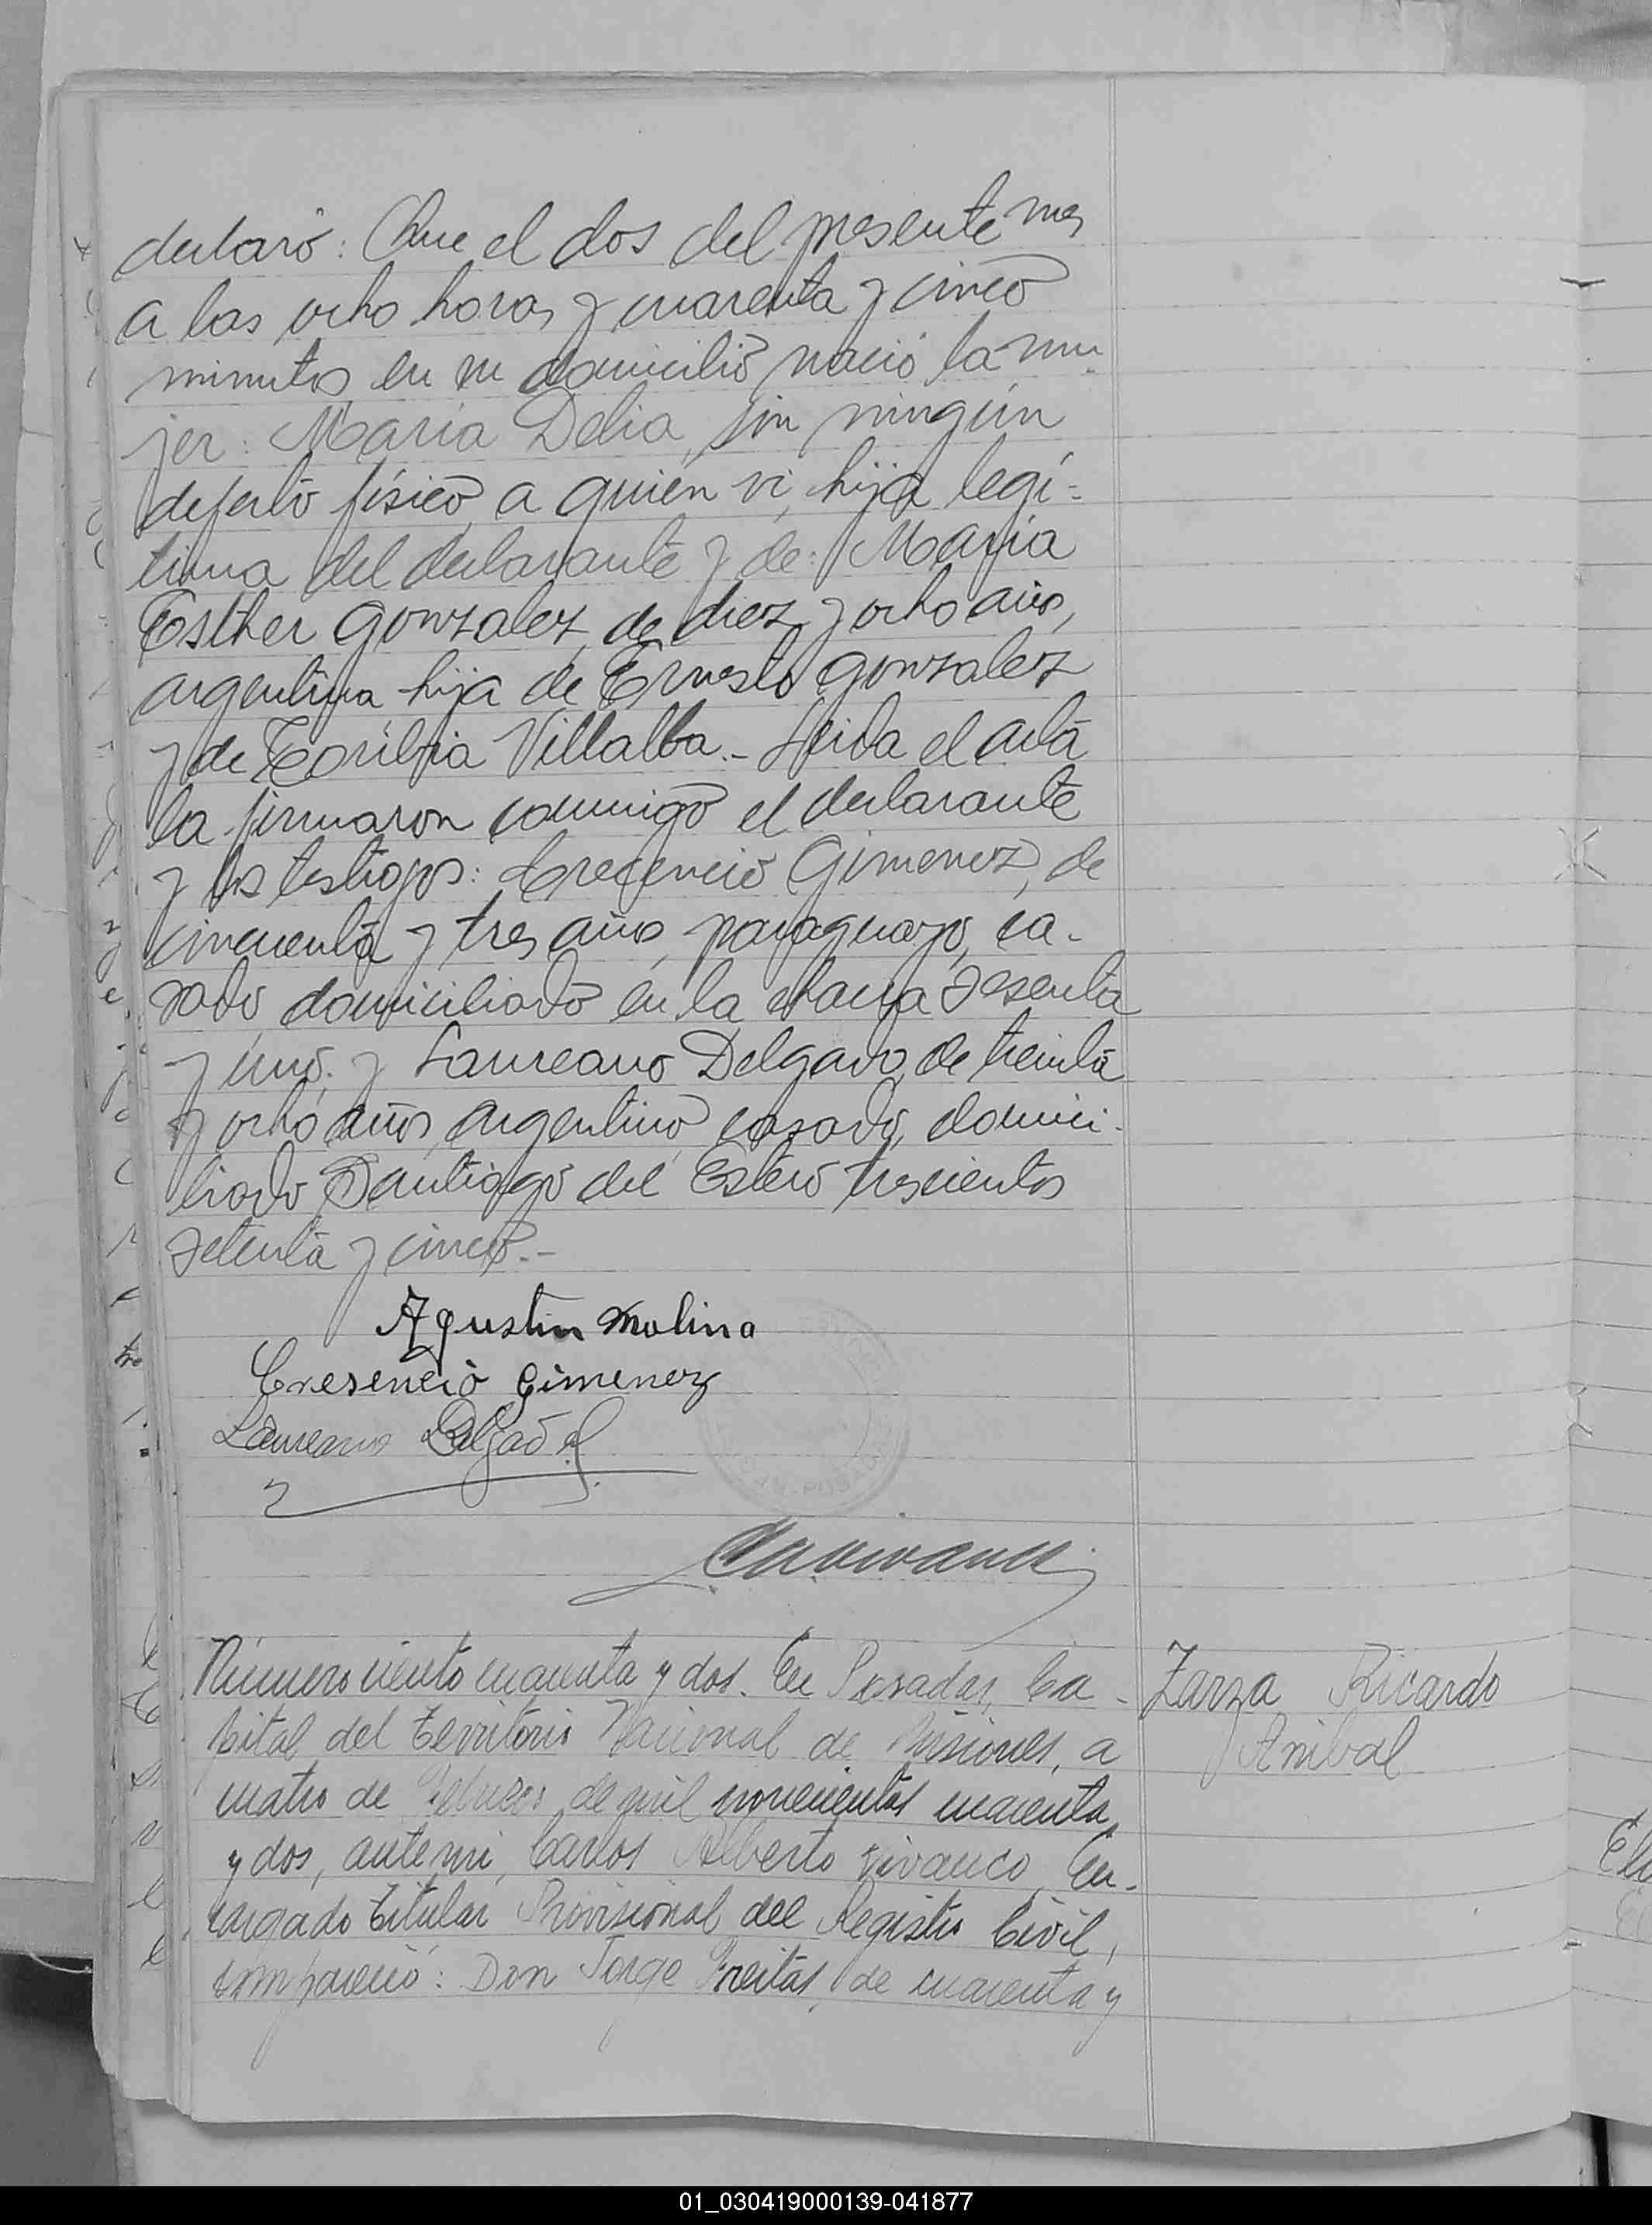 declaró: Que el dos del presente mes
a las ocho horas y cuarenta y cinco
minutos en su domicilio nació la mu-
jer: Maria Delia, sin ningún
defecto físico, a quién vi, hija legí-
tima del declarante y de: Maria
Esther Gonzalez, de diez y ocho años,
argentina hija de Ernesto Gonzalez
y de Toribia Villalba.- Leida el acta
la firmaron conmigo el declarante
y los testigos: Crecencio Gimenez, de
cincuenta y tres años, paraguayo, ca-
sado, domiciliado en la chacra sesenta
y uno. y Laureano Delgado, de treinta
y ocho años, argentino, casado, domici-
liado Santiago del Estero trescientos
setenta y cinco.-
Agustin Molina
Cresencio Gimenez
Laureano Delgado
Número ciento cuarenta y dos. En Posadas, Ca-
pital del Territorio Nacional de Misiones, a
cuatro de Febrero de mil novecientos cuarenta
y dos, ante mi, Carlos Alberto Vivanco, En-
cargado Titular Provisional del Registro Civil,
compareció: Don Jorge Freitas, de cuarenta y
Zarza Ricardo
Anibal
01_030419000139-041877